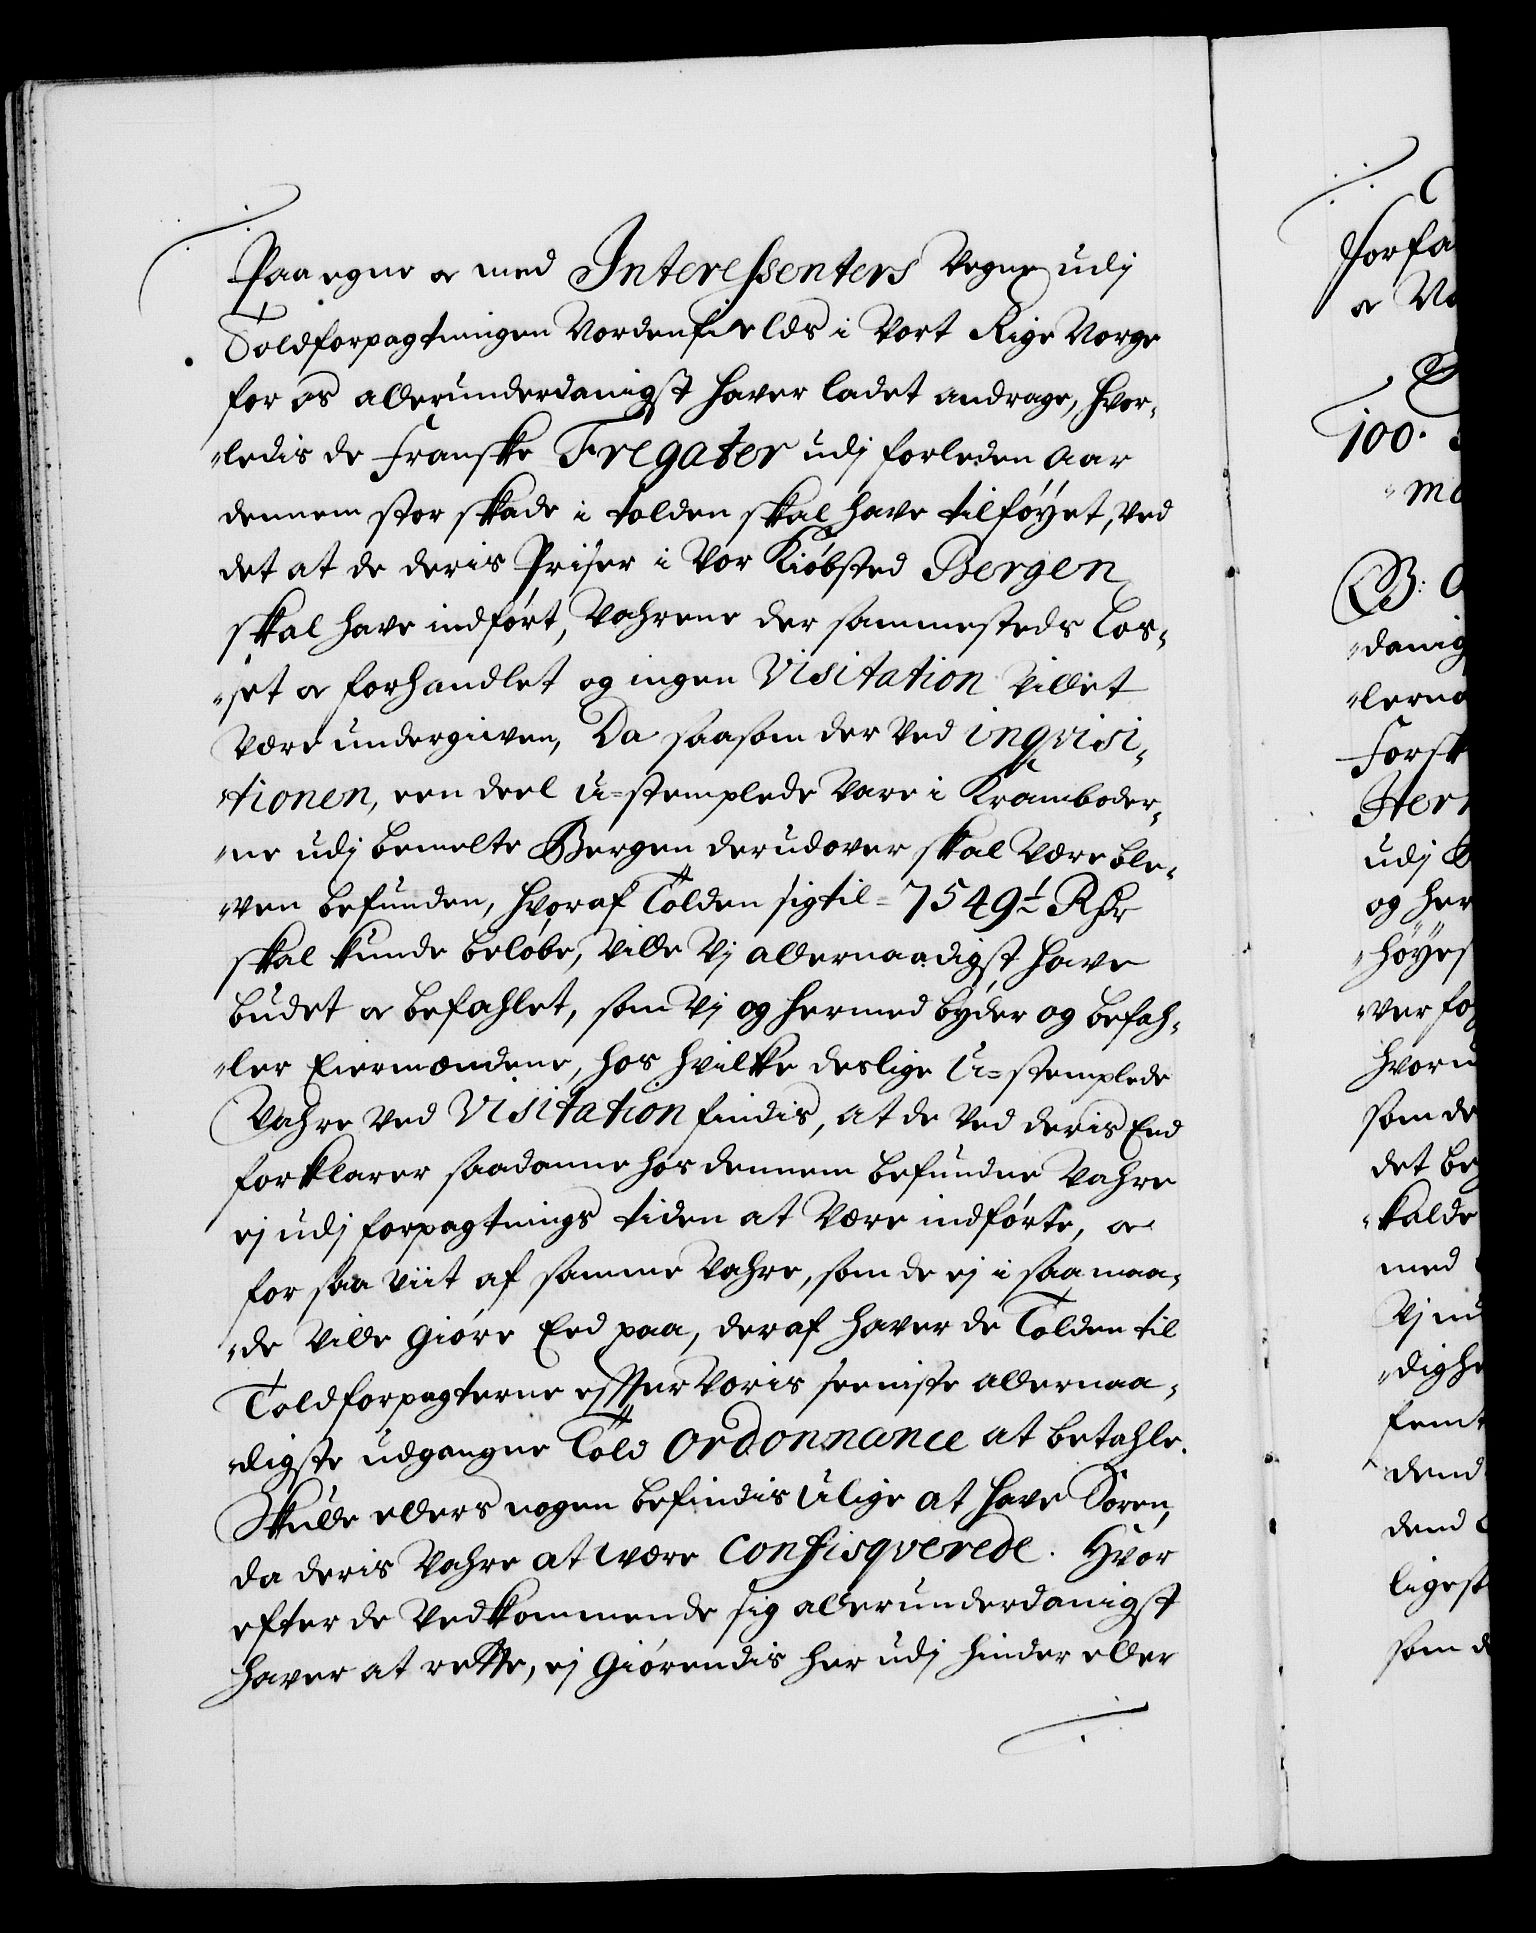 Paa egne oc med Interessenters Vegne udj
Toldforpagtningen Nordenfields i Vort Rige Norge
for os allerunderdanigst haver ladet andrage, hvor-
ledis de Franske Fregater udj forleden Aar
dennem stor skade i tolden skal have tilföyet, ved
det at de deris Priser i Vor Kiöbsted Bergen
skal have indfört, Vahrene der sammesteds Los-
set oc forhandlet og ingen Visitation villet
være undergiven, Da saasom der ved inqvisi-
tionen, een deel u-stemplede Vare i Kramboder-
ne udj bemelte Bergen derudover skal være ble-
ven befunden, hvoraf Tolden sig til 7549½ Rdr
skal kunde belöbe, Ville Vj allernaadigst have
budet oc befahlet, som Vj og hermed byder og befah-
ler Eiermændene, hos hvilke deslige U-stemplede
Vahre ved Visitation findis, at de ved deris Eed
forklarer saadanne hos dennem befundne Vahre
ej udj forpagtnings tiden at være indförte, oc
for saa viit af samme Vahre, som de ej i saa maa-
de ville giöre Eed paa, deraf haver de Tolden til
Toldforpagterne efter Voris seeniste allernaa-
digste udgangne Told Ordonnance at betahle.
Skulle ellers nogen befindis Ulige at have Soren,
da deris Vahre at være Confisqverede. Hvor
efter de Vedkommende sig allerunderdanigst
haver at rette, ej Giörendis her udj hinder eller
Forfa
oc
100.
B:
danig
lerna
Forsk
Her
udj
og her
höyes
ver fo
hvoru
som de
det be
kalde
med
Vj
digh
femt
dend
dend
ligest
som d